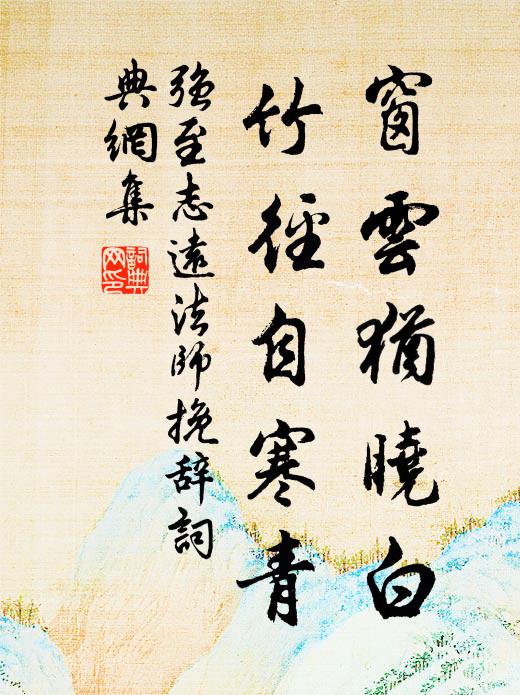 窗雲猶曉白
竹徑自寒青
強至志遠法師挽辞詞
典網集
詞典
网印